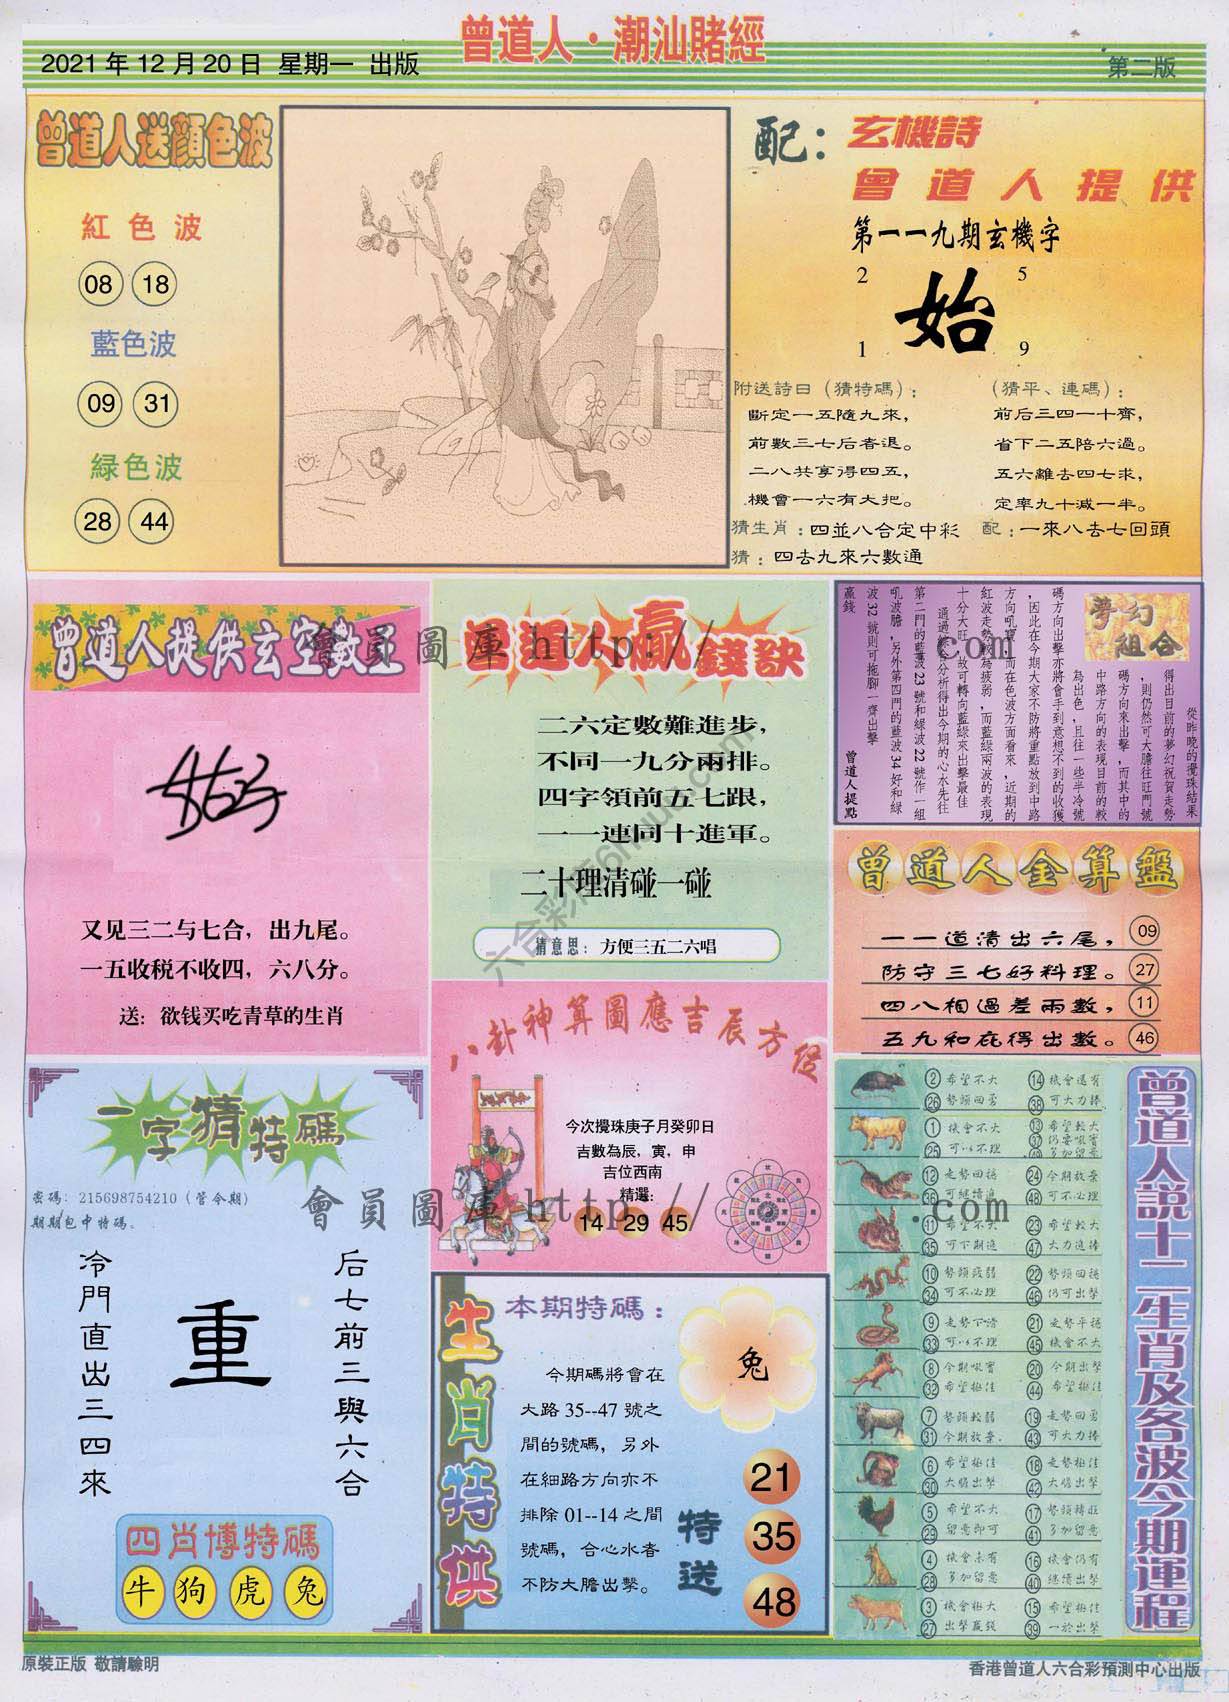 曾道人·潮汕賭經
2021年12月20日 星期一 出版
第二版
曾道人送顔色波
紅色波
08 18
藍色波
09 31
緑色波
28 44
配：玄機詩
曾道人提供
第一一九期玄機字
2 5
始
1 9
附送詩曰（猜特碼）：
斷定一五隨九來，
前數三七后者退。
二八共享得四五，
機會一六有大把。
（猜平、連碼）：
前后三四一十齊，
省下二五陪六過。
五六離去四七求，
定率九十减一半。
猜生肖：四並八合定中彩
配：一來八去七回頭
猜：四去九來六數通
曾道人提供玄空數王
又见三二与七合，出九尾。
一五收税不收四，六八分。
送：欲钱买吃青草的生肖
曾道人贏錢訣
二六定數難進步，
不同一九分兩排。
四字領前五七跟，
一一連同十進軍。
二十理清碰一碰
猜意思：方便三五二六唱
夢幻
組合
從昨晚的攪珠結果
得出目前的夢幻祝賀走勢
，則仍然可大膽往旺門號
碼方向來出擊，而其中的
中路方向的表現目前的較
為出色，且往一些半冷號
碼方向出擊亦將會手到意想不到的收獲
，因此在今期大家不防將重點放到中路
方向吼寶，而在色波方面看來，近期的
紅波走勢較為疲弱，而藍綠兩波的表現
十分大旺，故可轉向藍綠來出擊最佳
通過綜合分析得出今期的心水先往
第二門的藍波23號和綠波22號作一組
吼波膽，另外第四門的藍波34好和綠
波32號則可拖腳一齊出擊
贏錢
曾道人提點
曾道人金算盤
一一道清出六尾， 09
防守三七好料理。 27
四八相過差兩數， 11
五九和在得出數。 46
八卦神算圖應吉辰方位
今次攪珠庚子月癸卯日
吉數為辰，寅，申
吉位西南
精選：
14 29 45
一字猜特碼
密碼：215698754210（管令期）
期期包中特碼。
冷門直出三四來
重
后七前三與六合
四肖博特碼
牛 狗 虎 兔
生肖特供
本期特碼：
兔
今期碼將會在
大路35--47號之
間的號碼，另外
在細路方向亦不
排除01--14之間
號碼，合心水者
不防大膽出擊。
特送
21
35
48
曾道人説十二生肖及各波今期運程
② 希望不大 ⑭ 機會還有
㉖ 勢頭回勇 ㊳ 可大力捧
① 機會不大 ⑬ 希望較大
㉕ 可以不理 ㊲ 仍要吼實
㊾ 多加留意
⑫ 走勢回穩 ㉔ 今期放棄
㊱ 可繼續追 ㊽ 可不必理
⑪ 希望不大 ㉓ 希望較大
㉟ 可下期追 ㊼ 大力追捧
⑩ 勢頭疲弱 ㉒ 勢頭回穩
㉞ 可不必理 ㊻ 仍可出擊
⑨ 走勢下滑 ㉑ 走勢平穩
㉝ 可以不理 ㊺ 機會不大
⑧ 今期吼實 ⑳ 今期出擊
㉜ 希望極佳 ㊹ 希望極佳
⑦ 勢頭較弱 ⑲ 走勢回勇
㉛ 今期放棄 ㊸ 可大力捧
⑥ 希望極佳 ⑱ 走勢極佳
㉚ 大膽出擊 ㊷ 大膽出擊
⑤ 希望不大 ⑰ 勢頭轉旺
㉙ 留意即可 ㊶ 多加留意
④ 機會未有 ⑯ 機會仍有
㉘ 多加留意 ㊵ 繼續出擊
③ 機會極大 ⑮ 希望極佳
㉗ 出擊贏錢 ㊴ 一於出擊
會員圖庫 http:// .com
會員圖庫 http:// .com
六合彩库6huu.com
原裝正版 敬請驗明
香港曾道人六合彩預測中心出版